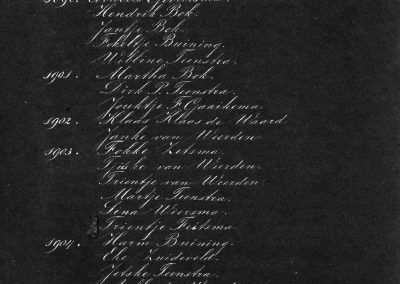 Hendrik Bok.
Jantje Bok.
Fokeltje Buining.
Teenstra.
1901. Martha Bok.
Dirk P. Teenstra.
F. Gaaikema.
1902. Klaas Klaas de Waard
Janke van Weerden.
1903. Fokke Zetsma.
van Weerden.
Trientje van Weerden.
Martje Teenstra.
Lena Wiersma.
Trientje Feitsma.
1904. Harm Buining.
Eke Zuideveld.
Jetske Teenstra.